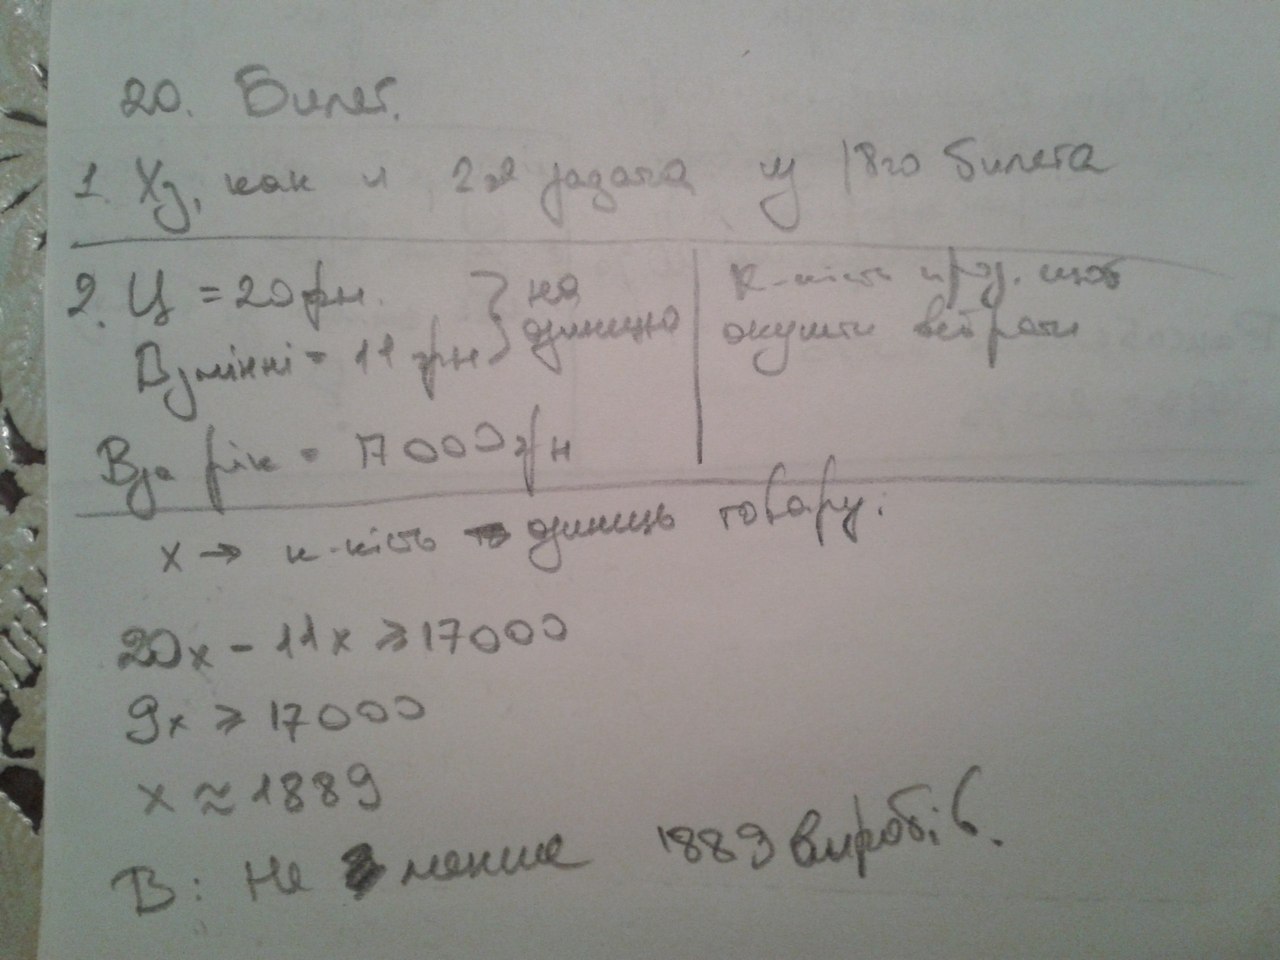 20. Билет.
1. Хз, как и 2я задача из 18го билета
2. Ц = 20 грн.
Взмінні = 11 грн
} на одиницю
Вза рік = 17000 грн
К-кість прод. щоб
окупити витрати
x → к-кість одиниць товару.
20x - 11x ≥ 17000
9x ≥ 17000
x ≈ 1889
В: Не менше 1889 виробів.